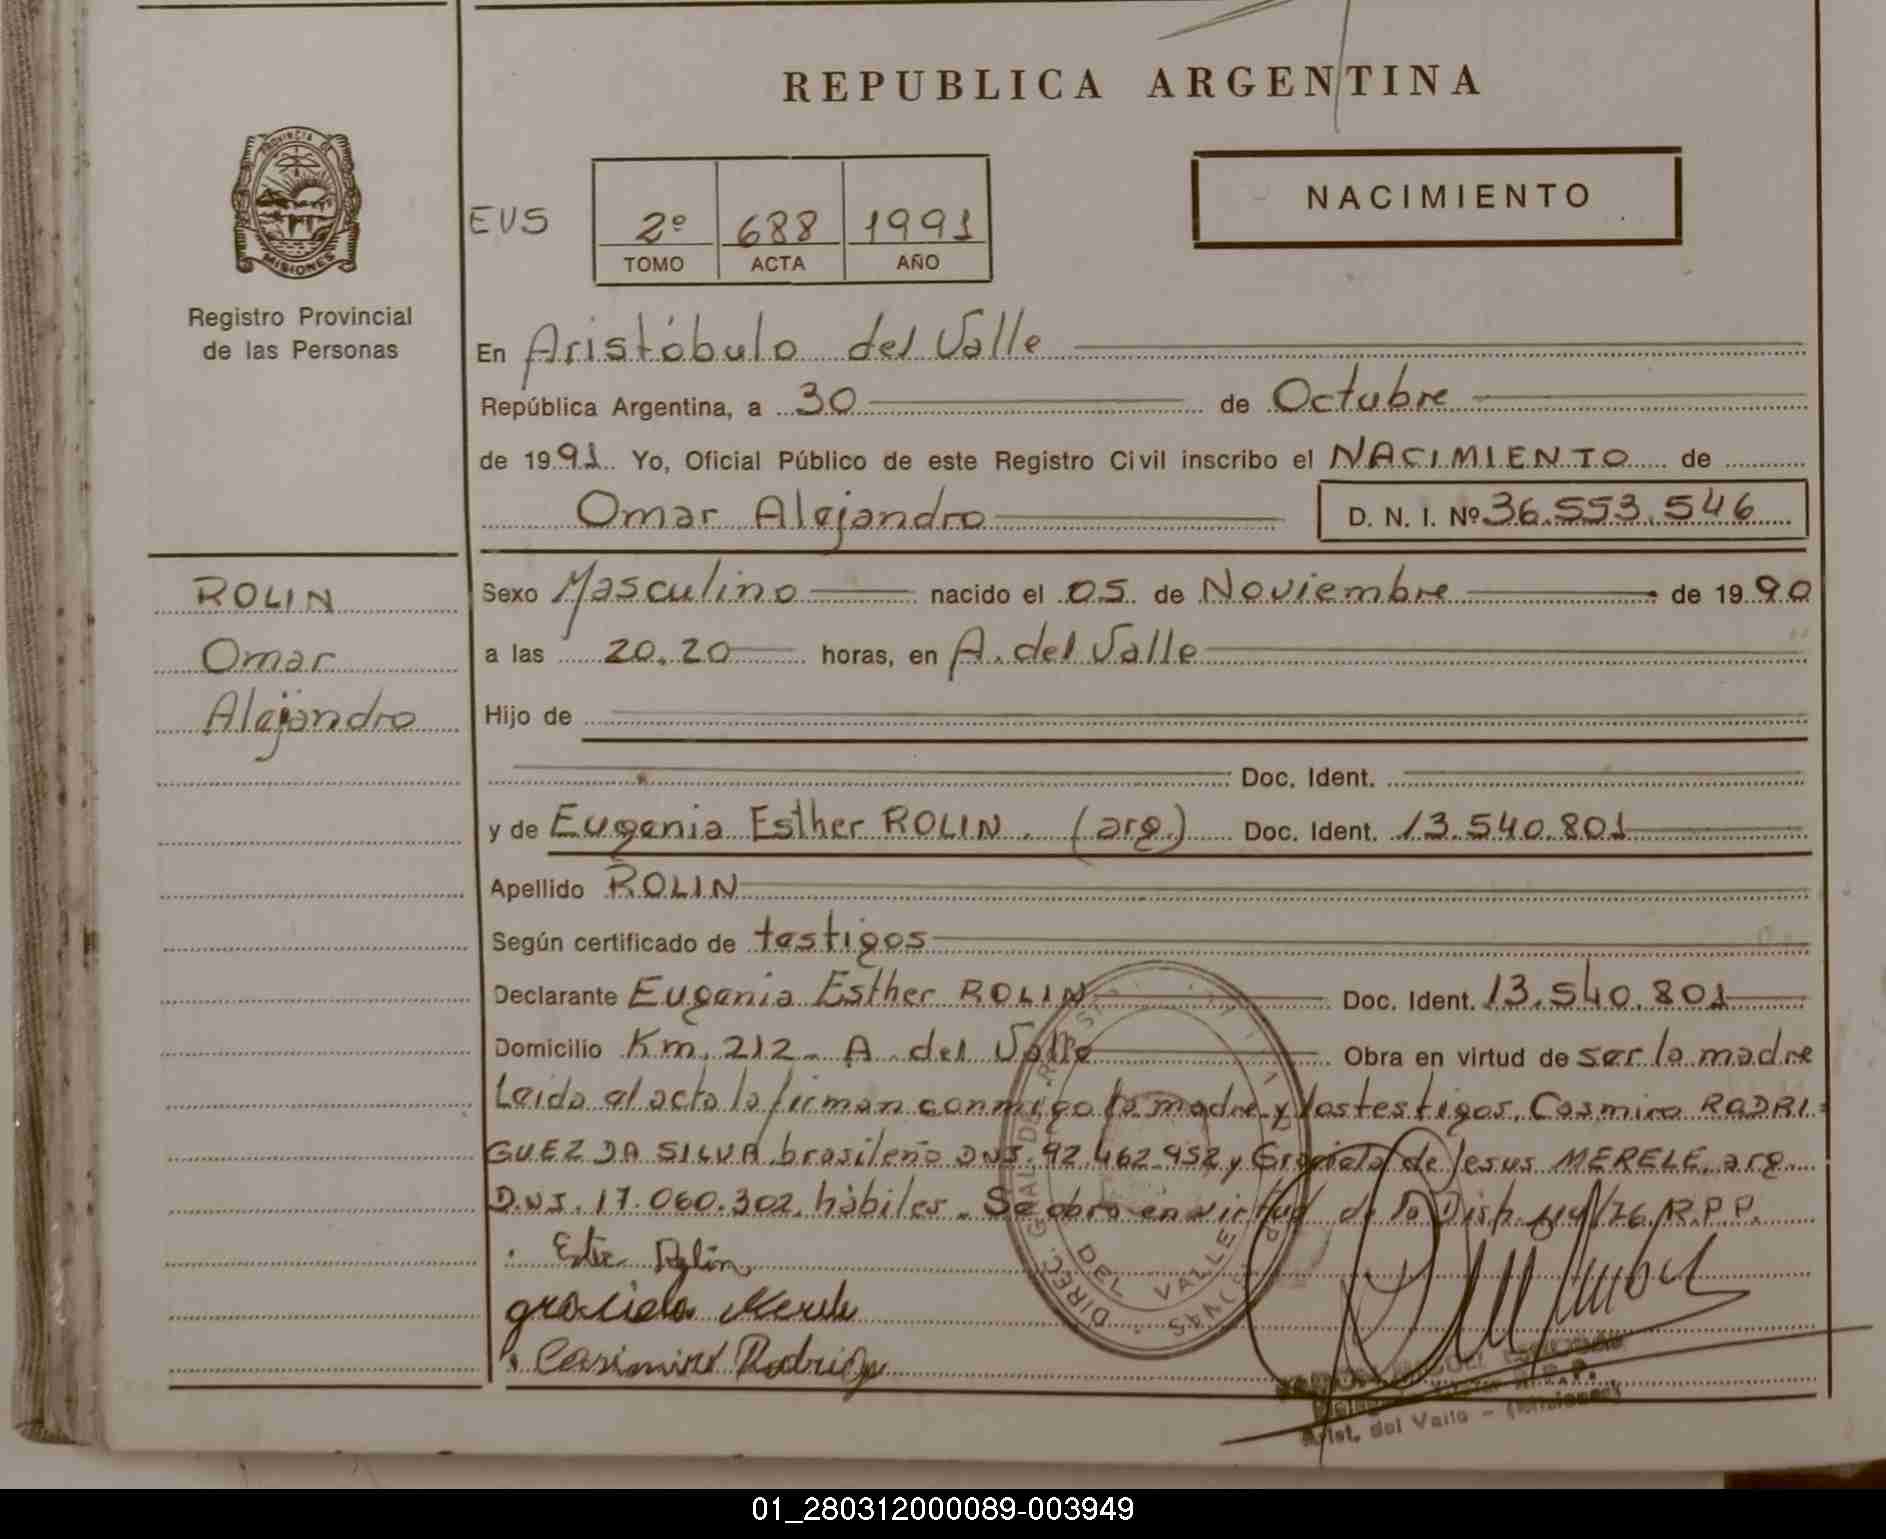 REPUBLICA ARGENTINA
PROVINCIA DE
MISIONES
Registro Provincial
de las Personas
EVS
2º 688 1991
TOMO ACTA AÑO
NACIMIENTO
En Aristóbulo del Valle
República Argentina, a 30 de Octubre
de 1991 Yo, Oficial Público de este Registro Civil inscribo el NACIMIENTO de
Omar Alejandro D. N. I. Nº 36.553.546
ROLIN
Omar
Alejandro
Sexo Masculino nacido el 05 de Noviembre de 1990
a las 20.20 horas, en A. del Valle
Hijo de
Doc. Ident.
y de Eugenia Esther ROLIN. (arg.) Doc. Ident. 13.540.801
Apellido ROLIN
Según certificado de testigos
Declarante Eugenia Esther ROLIN Doc. Ident. 13.540.801
Domicilio Km. 212 - A. del Valle Obra en virtud de ser la madre
Leida el acta la firman conmigo la madre y los testigos, Casmiro RODRI=
GUEZ DA SILVA brasileño DNI. 92.462.952 y Graciela de Jesus MERELE, arg.
D.N.I. 17.060.302, hábiles. Se obra en virtud de la Disp. /76 R.P.P.
Rolin
graciela Merele
Casimiro Rodrigu
DIREC. GRAL. DE
DEL VALLE
Arist. del Valle - (Misiones)
01_280312000089-003949